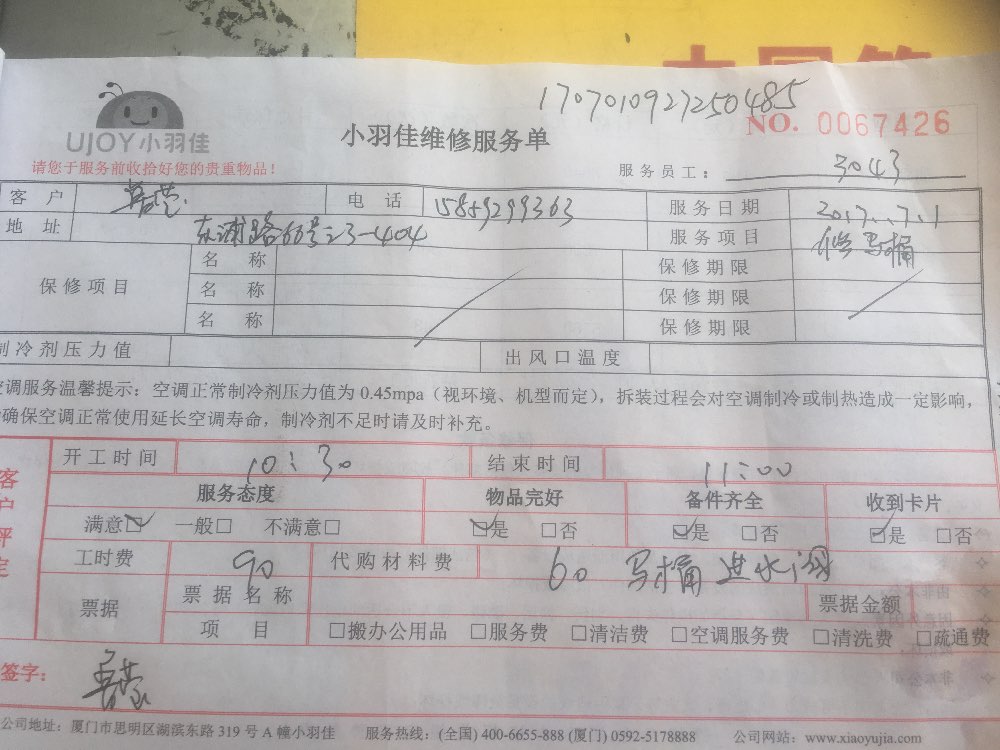 1707010927250485
UJOY小羽佳
小羽佳维修服务单
NO. 0067426
请您于服务前收拾好您的贵重物品！
服务员工： 3043
客 户
电 话 15859299363
服务日期 2017.7.1
地 址 东浦路66号23-404
服务项目 维修马桶
保修项目
名 称
保修期限
名 称
保修期限
名 称
保修期限
制冷剂压力值
出风口温度
空调服务温馨提示：空调正常制冷剂压力值为 0.45mpa（视环境、机型而定），拆装过程会对空调制冷或制热造成一定影响，
确保空调正常使用延长空调寿命，制冷剂不足时请及时补充。
客户评定
开工时间 10:30
结束时间 11:00
服务态度 物品完好 备件齐全 收到卡片
满意☑ 一般□ 不满意□ ☑是 □否 ☑是 □否 ☑是 □否
工时费 90
代购材料费 60 马桶进水阀
票据
票据名称
票据金额
项 目 □搬办公用品 □服务费 □清洁费 □空调服务费 □清洗费 □疏通费
签字：
公司地址：厦门市思明区湖滨东路 319 号 A 幢小羽佳 服务热线：(全国) 400-6655-888 (厦门) 0592-5178888 公司网站：www.xiaoyujia.com